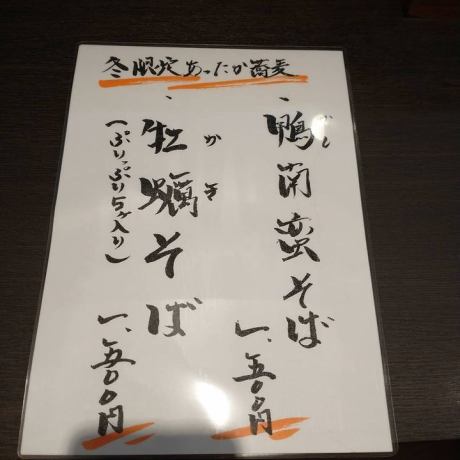 冬限定あったか蕎麦
・鴨南蛮そば
一、五〇〇円
・牡蠣そば
かき
(ぷりっぷり5ヶ入り)
一、五〇〇円